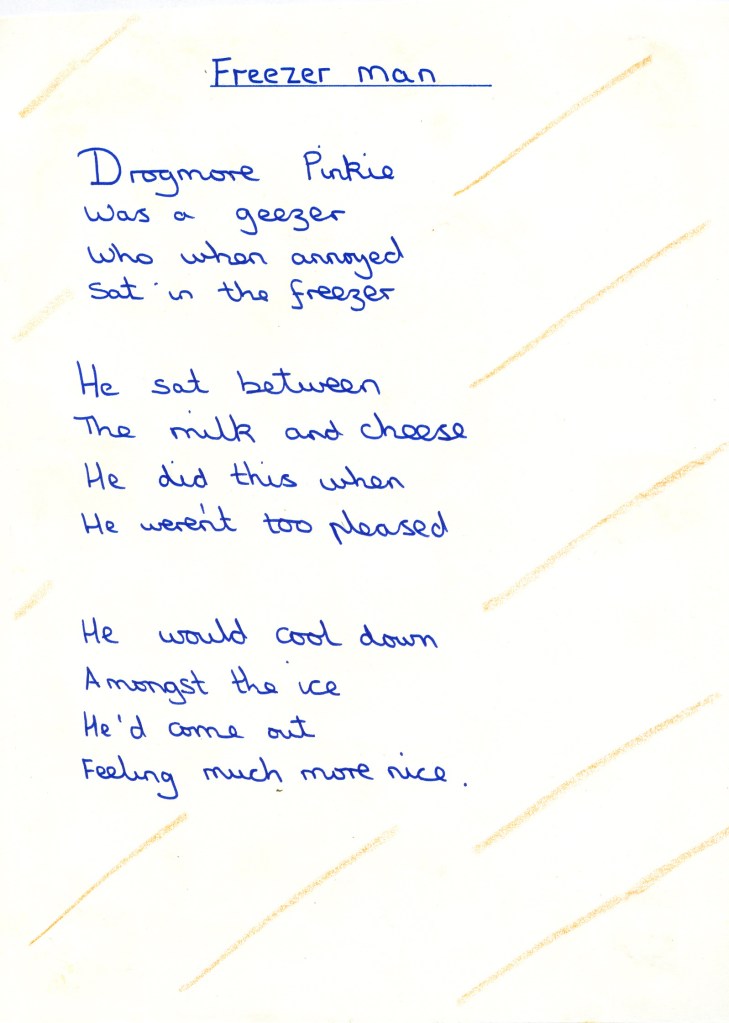 Freezer man
Drogmore Pinkie
Was a geezer
Who when annoyed
Sat in the freezer
He sat between
The milk and cheese
He did this when
He weren't too pleased
He would cool down
Amongst the ice
He'd come out
Feeling much more nice.